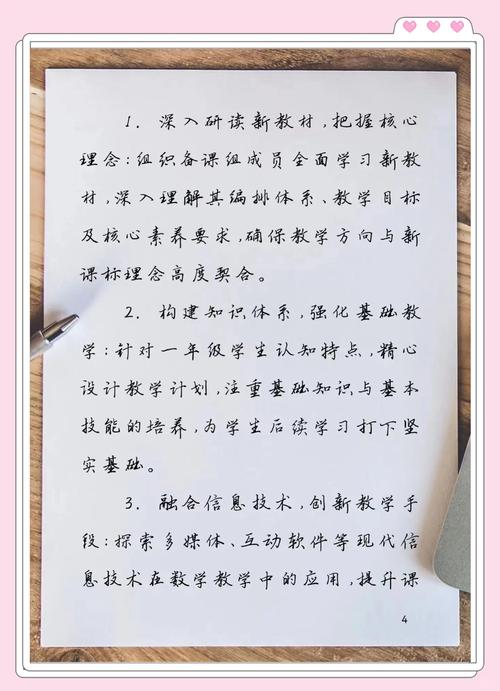 1. 深入研读新教材,把握核心
理念:组织备课组成员全面学习新教
材,深入理解其编排体系、教学目标
及核心素养要求,确保教学方向与新
课标理念高度契合。
2. 构建知识体系,强化基础教
学:针对一年级学生认知特点,精心
设计教学计划,注重基础知识与基本
技能的培养,为学生后续学习打下坚
实基础。
3. 融合信息技术,创新教学手
段:探索多媒体、互动软件等现代信
息技术在数学教学中的应用,提升课
4